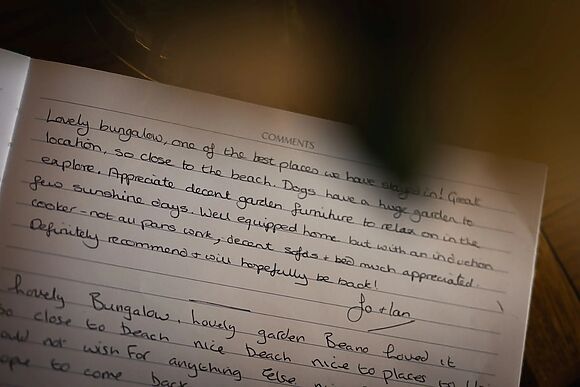 COMMENTS
Lovely bungalow, one of the best places we have stayed in! Great
location, so close to the beach. Dogs have a huge garden to
explore. Appreciate decent garden furniture to relax on in the
few sunshine days. Well equipped home but with an induction
cooker - not all pans work, decent sofas + bed much appreciated.
Definitely recommend + will hopefully be back!
Jo + Ian
Lovely Bungalow, lovely garden Beano loved it
so close to beach nice beach nice to places to
ould not wish for anything else
ope to come back